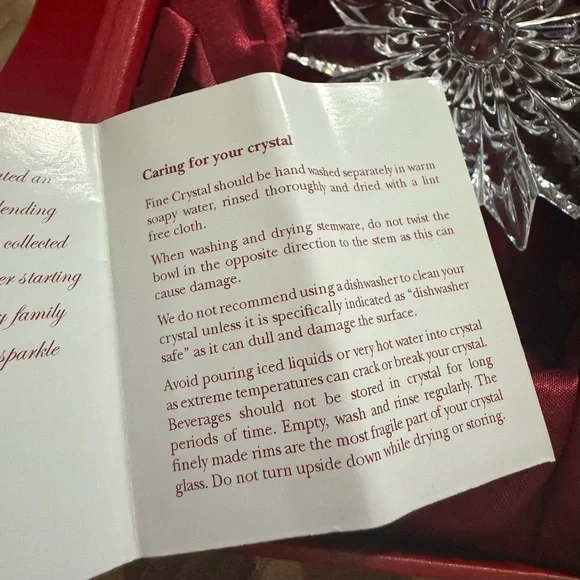 ated an
lending
collected
er starting
y family
sparkle
Caring for your crystal
Fine Crystal should be hand washed separately in warm
soapy water, rinsed thoroughly and dried with a lint
free cloth.
When washing and drying stemware, do not twist the
bowl in the opposite direction to the stem as this can
cause damage.
We do not recommend using a dishwasher to clean your
crystal unless it is specifically indicated as “dishwasher
safe” as it can dull and damage the surface.
Avoid pouring iced liquids or very hot water into crystal
as extreme temperatures can crack or break your crystal.
Beverages should not be stored in crystal for long
periods of time. Empty, wash and rinse regularly. The
finely made rims are the most fragile part of your crystal
glass. Do not turn upside down while drying or storing.